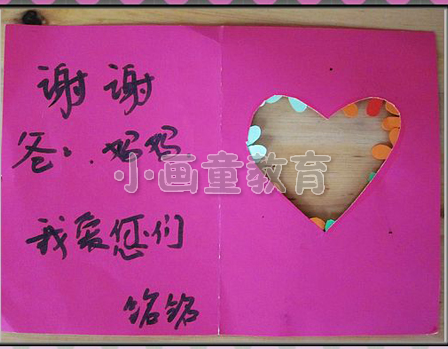 谢谢
爸、妈妈
小画童教育
我爱您们
铭铭